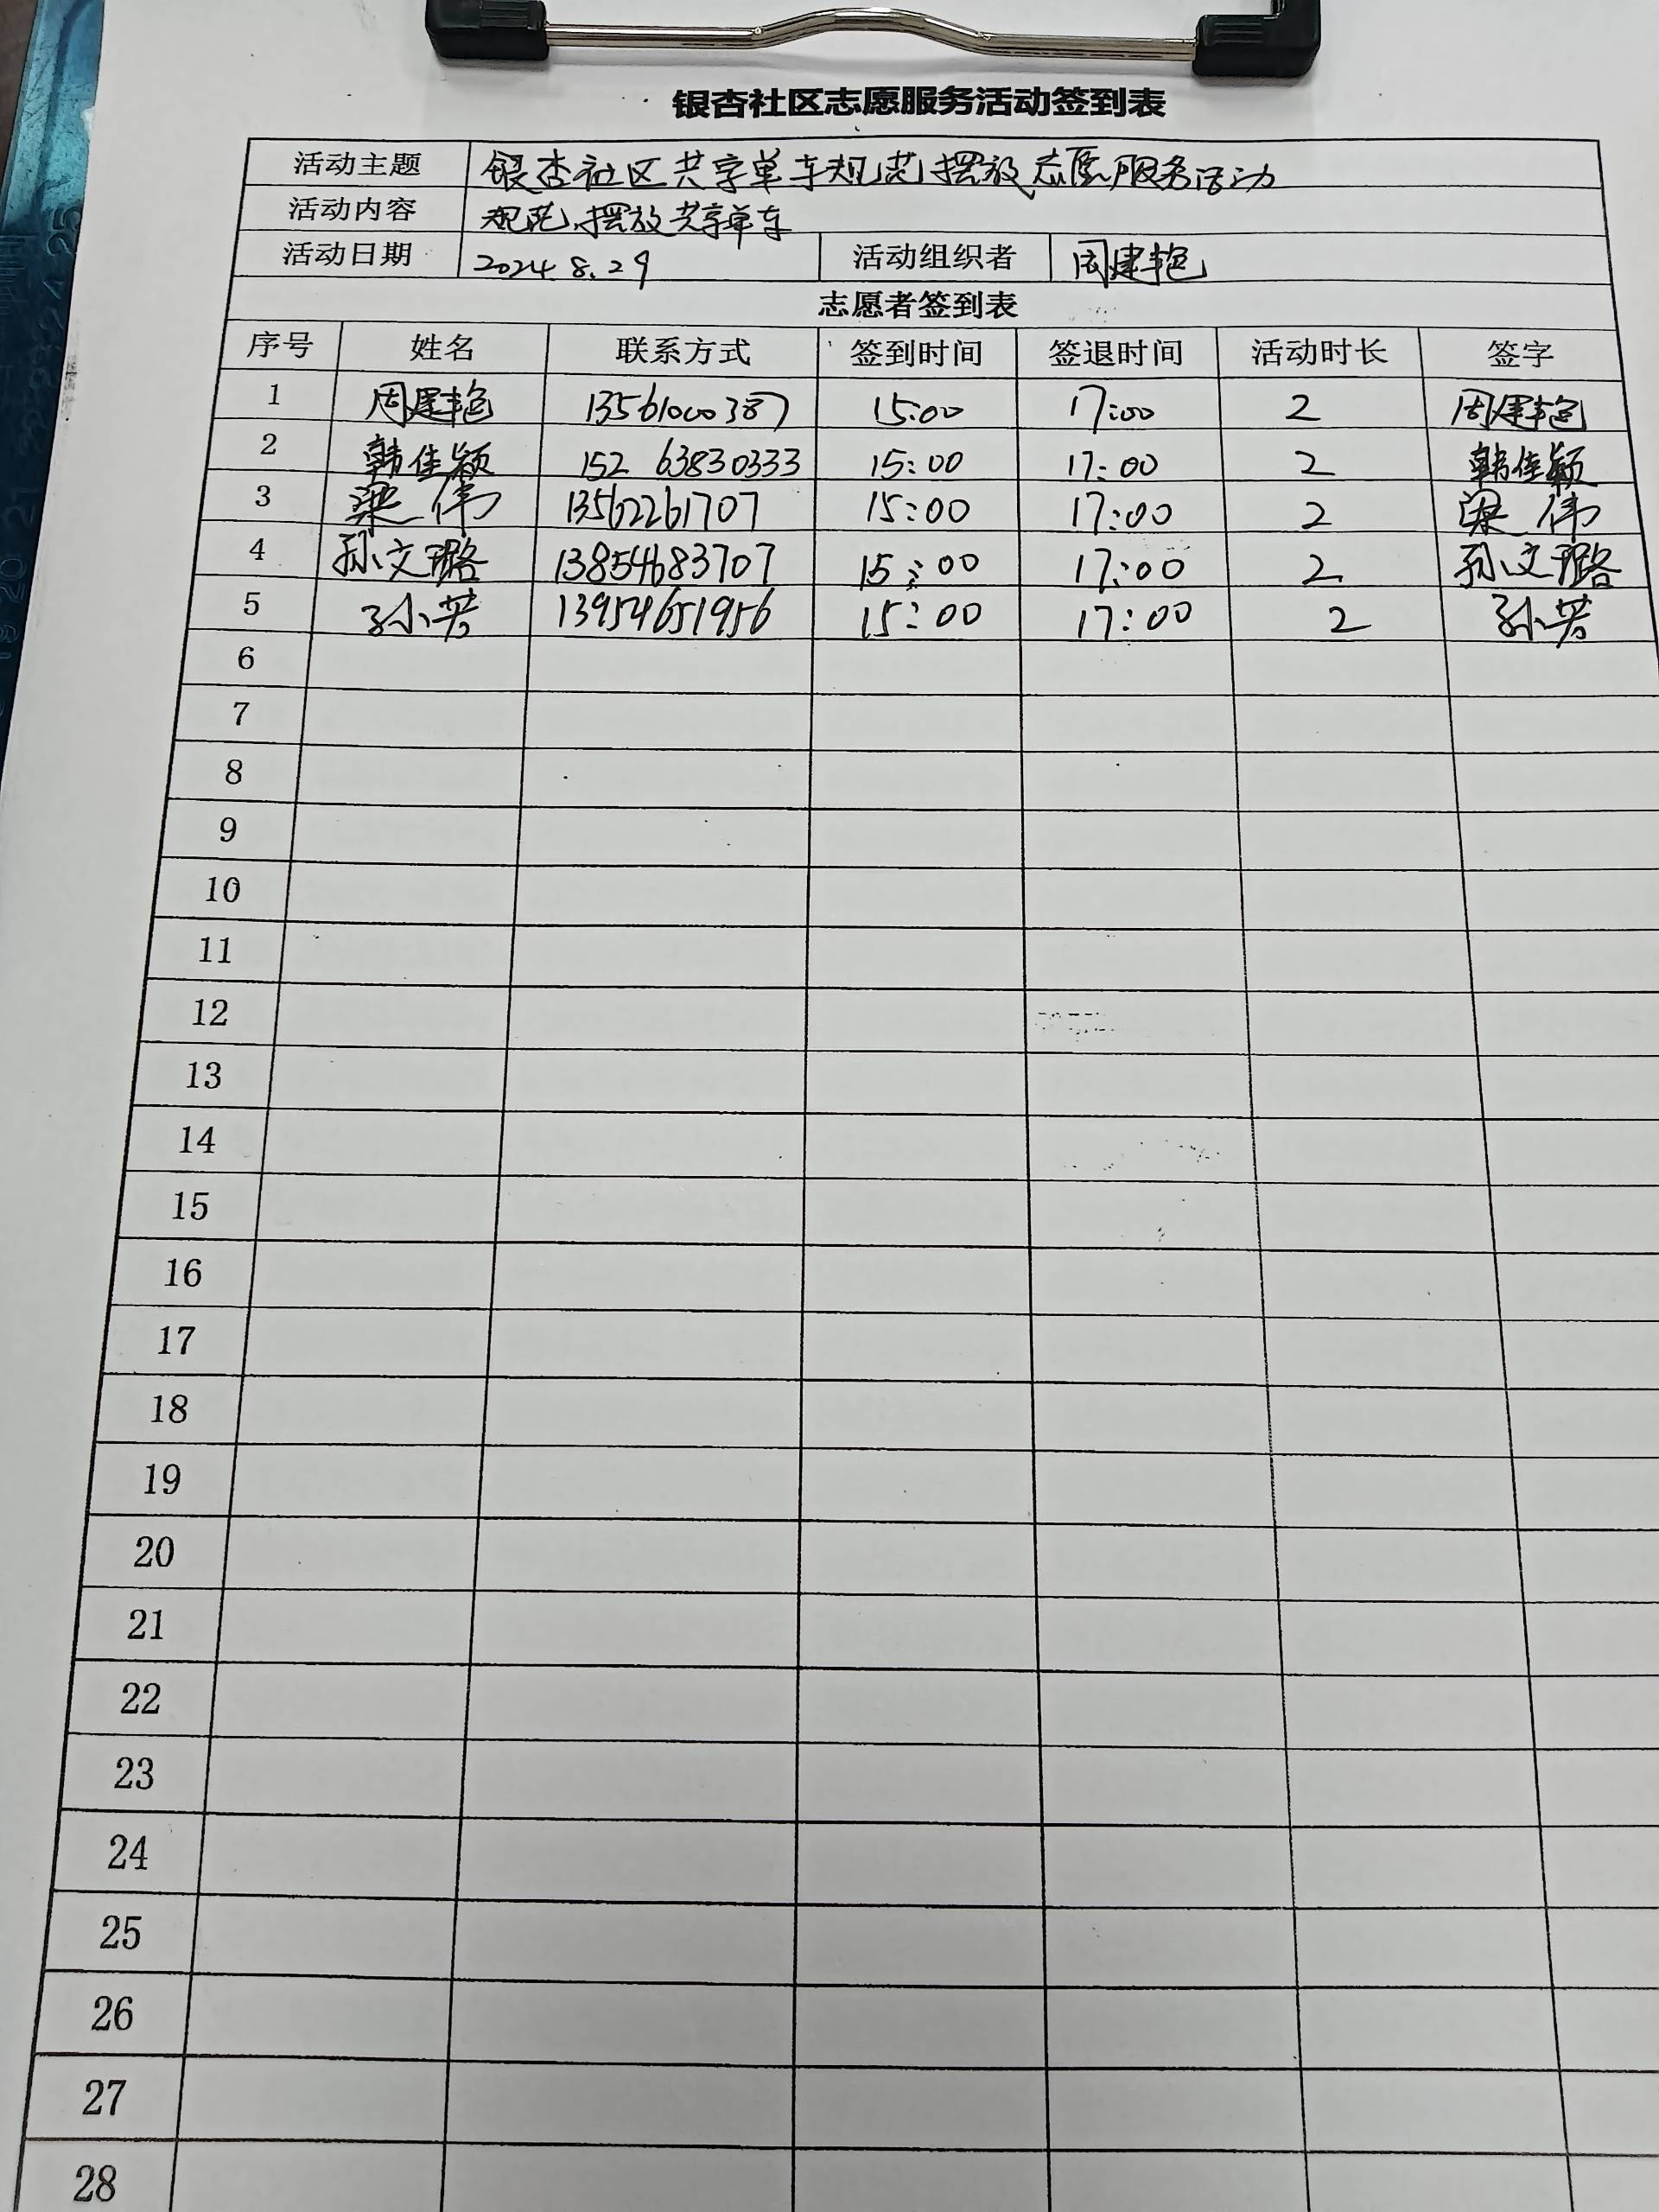 银杏社区志愿服务活动签到表
活动主题 银杏社区共享单车规范摆放志愿服务活动
活动内容 规范摆放共享单车
活动日期 2024.8.29 活动组织者 周建艳
志愿者签到表
序号 姓名 联系方式 签到时间 签退时间 活动时长 签字
1 周建艳 13561000387 15:00 17:00 2 周建艳
2 韩佳颖 152 63830333 15:00 17:00 2 韩佳颖
3 梁伟 13562261707 15:00 17:00 2 梁伟
4 孙文璐 13854683707 15:00 17:00 2 孙文璐
5 孙芳 13954651956 15:00 17:00 2 孙芳
6
7
8
9
10
11
12
13
14
15
16
17
18
19
20
21
22
23
24
25
26
27
28